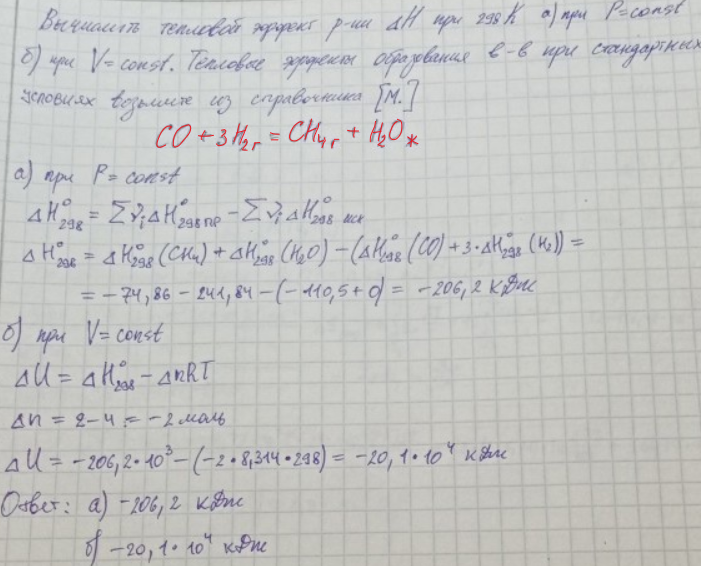 Вычислить тепловой эффект р-ии ΔH при 298К а) при P=const
б) при V=const. Тепловые эффекты образования в-в при стандартных
условиях возьмите из справочника [М.]
CO + 3H₂г = CH₄г + H₂Oж
а) при P = const
ΔH°₂₉₈ = ΣνᵢΔH°₂₉₈ пр − ΣνᵢΔH°₂₉₈ исх
ΔH°₂₉₈ = ΔH°₂₉₈(CH₄) + ΔH°₂₉₈(H₂O) − (ΔH°₂₉₈(CO) + 3·ΔH°₂₉₈(H₂)) =
= −74,86 − 241,84 − (−110,5 + 0) = −206,2 кДж
б) при V = const
ΔU = ΔH°₂₉₈ − ΔnRT
Δn = 2−4 = −2 моль
ΔU = −206,2·10³ − (−2·8,314·298) = −20,1·10⁴ кДж
Ответ: а) −206,2 кДж
б) −20,1·10⁴ кДж